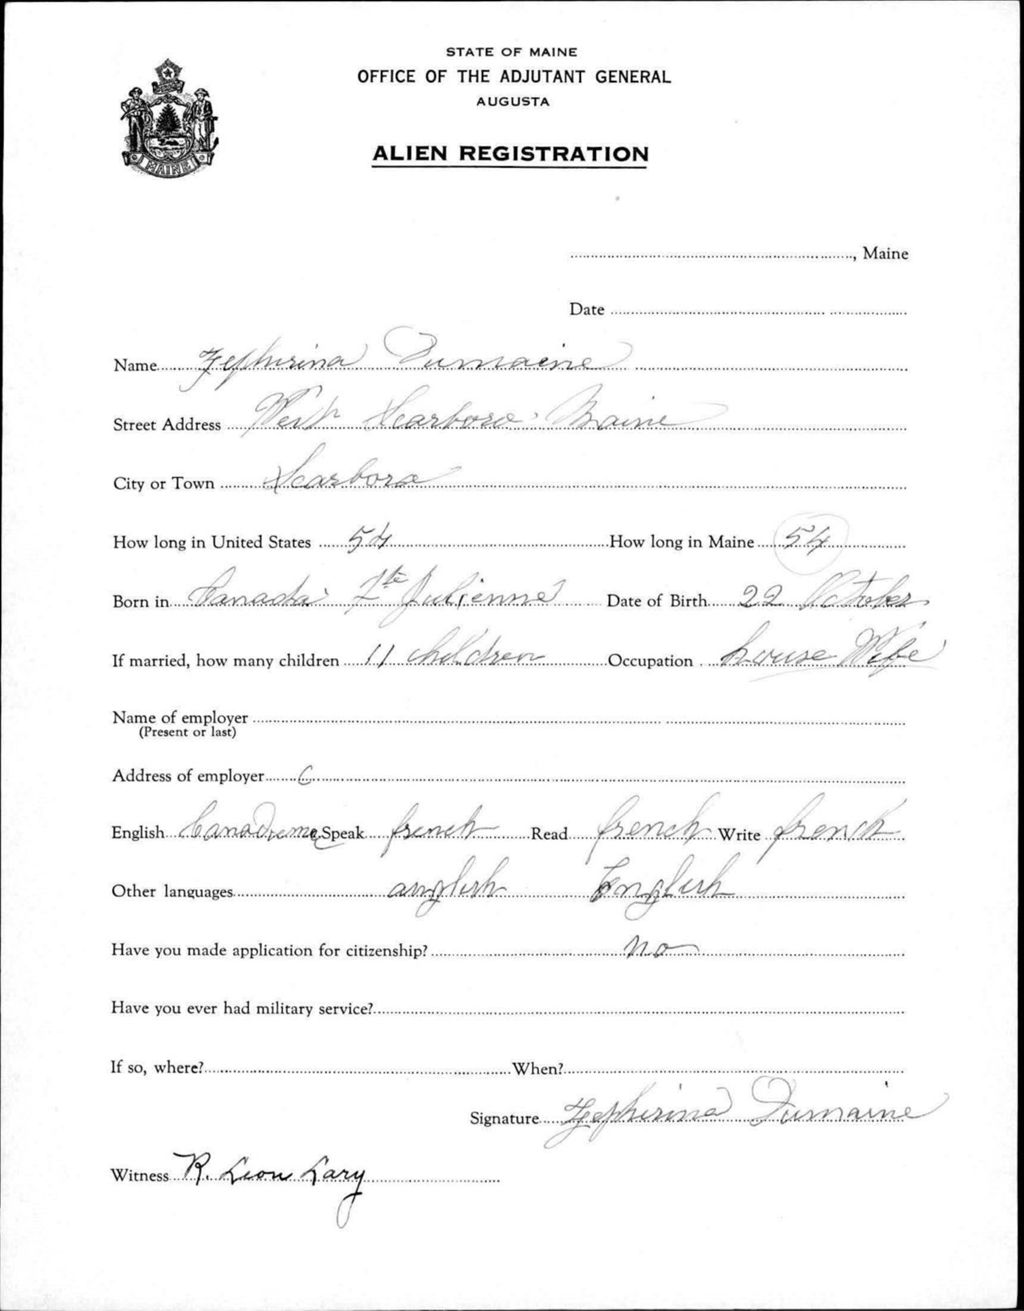 STATE OF MAINE
OFFICE OF THE ADJUTANT GENERAL
AUGUSTA
ALIEN REGISTRATION
MAINE
, Maine
Date
Name Zephirina Dumaine
Street Address West Scarboro Maine
City or Town Scarboro
How long in United States 54 How long in Maine 54
Born in Canada Ste Julienne Date of Birth 22 October
If married, how many children 11 children Occupation house Wife
Name of employer
(Present or last)
Address of employer
English Speak french Read french Write french
Other languages anglish English
Have you made application for citizenship? no
Have you ever had military service?
If so, where? When?
Signature Zephirina Dumaine
Witness R. Leon Lary